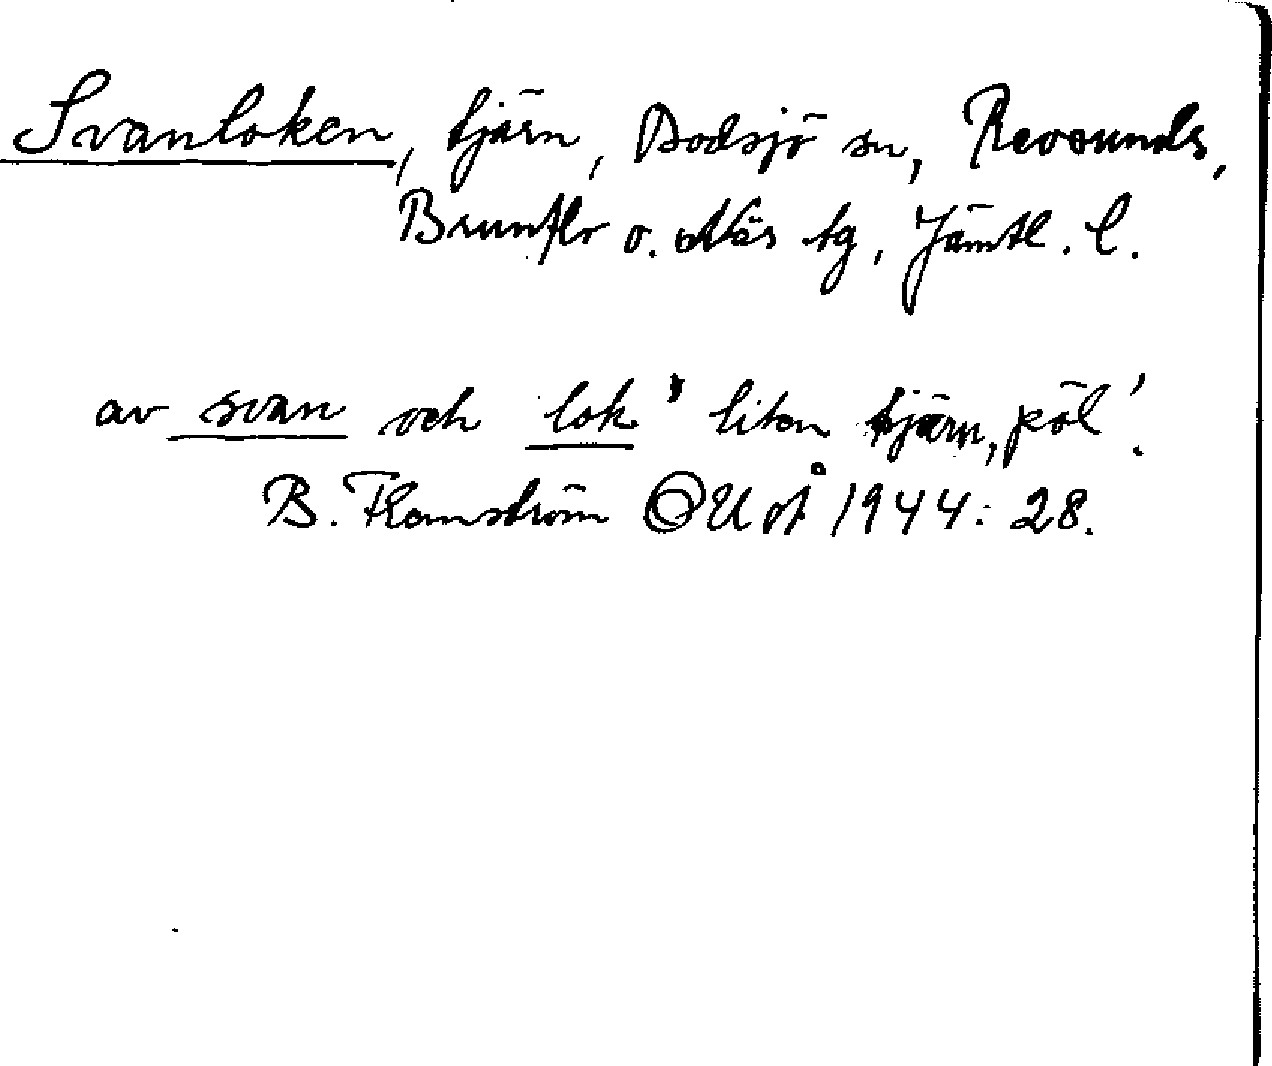 Svanloken, tjärn, Bodsjö sn, Revsunds,
Brunflo o. Näs tg, Jämtl. l.
av svan och lok 'liten tjärn, pöl'.
B. Flemström OUÅ 1944: 28.